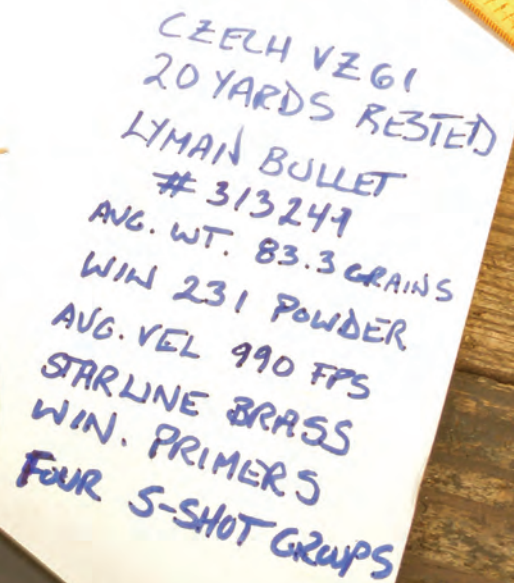 CZECH VZ61
20 YARDS RESTED
LYMAN BULLET
# 313249
AVG. WT. 83.3 GRAINS
WIN 231 POWDER
AVG. VEL 990 FPS
STARLINE BRASS
WIN. PRIMERS
FOUR 5-SHOT GROUPS